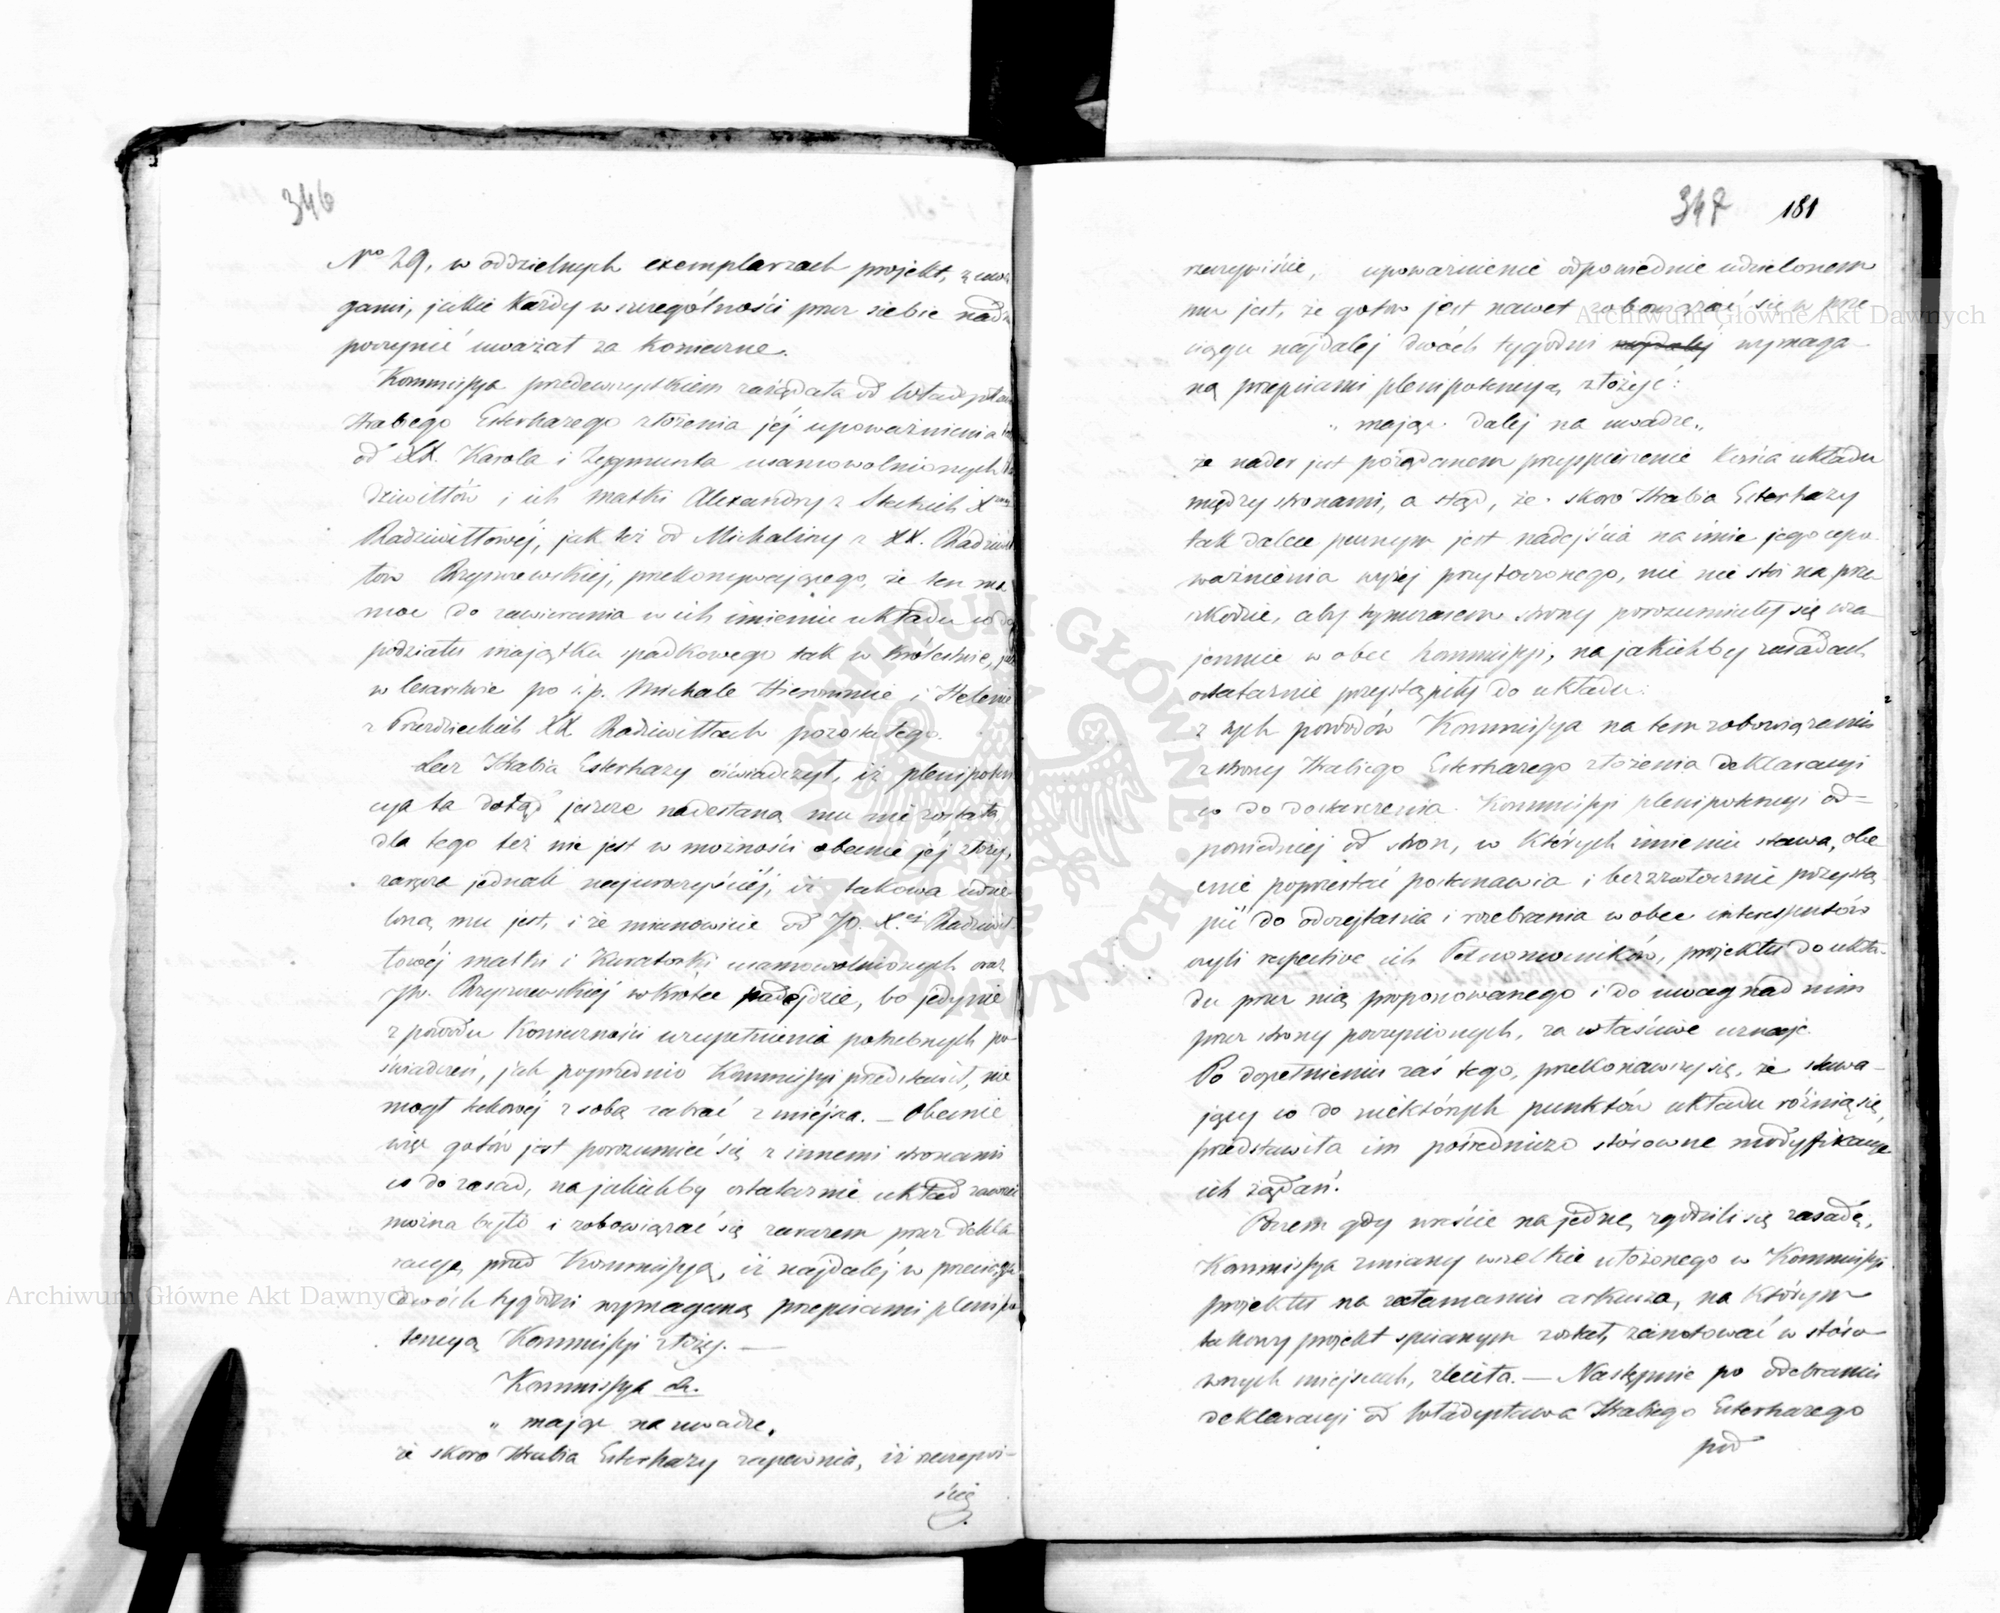 346
No 29, w oddzielnych exemplarzach projekt, z uwa
gami, jakie każdy w szczególności przez siebie nad
poczynić uważał za konieczne.
Kommissya przedewszystkiem zażądała od Władysława
Hrabiego Esterhazego złożenia jéj upoważnienia
od XX. Karola i Zygmunta usamowolnionych Ra
dziwiłłów i ich matki Alexandry z Steckich X
Radziwiłłowéj, jak też od Michaliny z XX. Radziwił
łów Rzyszczewskiéj, przekonywającego, że ten ma
moc do zawierania w ich imieniu układu co do
podziału majątku spadkowego tak w Królestwie, jak
w Cesarstwie po ś. p. Michale Hieronimie i Helenie
z Przezdzieckich XX. Radziwiłłach pozostałego.
Lecz Hrabia Esterhazy oświadczył, iż plenipoten
cya ta dotąd jeszcze nadesłaną mu nie została,
dla tego też nie jest w możności obecnie jéj złożyć,
zaręcza jednak najuroczyściéj, iż takowa udzie
loną mu jest, i że mianowicie od JO. X.ej Radziwił-
łowéj matki i Kuratorki usamowolnionych oraz
JW. Rzyszczewskiéj wkrótce nadejdzie, bo jedynie
z powodu konieczności uzupełnienia potrzebnych po-
świadczeń, jak poprzednio Kommissyi przedstawił, nie
mógł takowéj z sobą zabrać z miéjsca. — Obecnie
więc gotów jest porozumieć się z innemi stronami
co do zasad, na jakichby ostatecznie układ zawrzéć
można było i zobowiązać się zarazem przez dekla
racyą przed Kommissyą, iż najdaléj w przeciągu
dwóch tygodni wymaganą przepisami plenipo
tencyą Kommissyi złoży. —
Kommissya
„ mając na uwadze,
że skoro Hrabia Esterhazy zapewnia, iż rzeczywi-
ście
347 181
rzeczywiście, upoważnienie odpowiednie udzielonem
mu jest, że gotów jest nawet zobowiązać się w prze
ciągu najdalej dwóch tygodni najdalej wymaga
ną przepisami plenipotencyą złożyć:
„ mając dalej na uwadze„
że nader jest pożądanem przyspieszenie końca układu
między stronami, a stąd, że skoro Hrabia Esterhazy
tak dalece pewnym jest nadejścia na imie jego upo
ważnienia wyżéj przytoczonego, nic nie stoi na prze
szkodzie, aby tymczasem strony porozumiały się wza
jemnie wobec Kommissyi, na jakichby zasadach
ostatecznie przystąpiły do układu:
z tych powodów Kommissya na tem zobowiązaniu
z strony Hrabiego Esterhazego złożenia deklaracyi
co do dostarczenia Kommissyi plenipotencyi od=
powiedniej od stron, w których imieniu stawa, obe
cnie poprzestać postanawia i bezzwłocznie przystą
pić do odczytania i rozebrania wobec interessentów
czyli respective ich Pełnomocników, projektu do ukła-
du przez nią proponowanego i do uwag nad nim
przez strony poczynionych, za właściwe uznaje.
Po dopełnieniu zaś tego, przekonawszy się, że stawa-
jący co do niektórych punktów układu różnią się,
przedstawiła im pośrednicząc stosowne modyfikacye
ich żądań.
Poczem gdy wreście na jednę zgodzili się zasadę,
Kommissya zmiany wszelkie ułożonego w Kommissyi
projektu na załamaniu arkusza, na którym
takowy projekt spisanym został, zanotować w stóso
wnych miejscach, zleciła. — Następnie po odebraniu
deklaracyi od Władysława Hrabiego Esterhazego
pod
Archiwum Główne Akt Dawnych
Archiwum Główne Akt Dawnych
ARCHIWUM GŁÓWNE AKT DAWNYCH